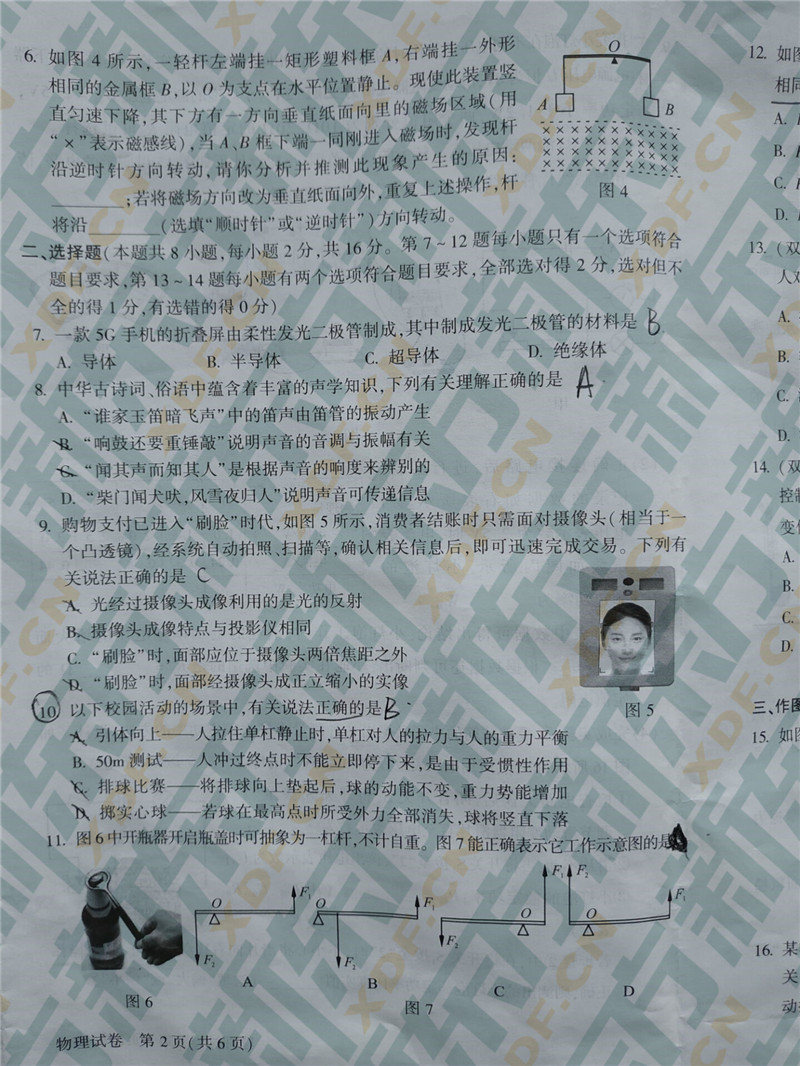 6. 如图 4 所示,一轻杆左端挂一矩形塑料框 A,右端挂一外形
相同的金属框 B,以 O 为支点在水平位置静止。现使此装置竖
直匀速下降,其下方有一方向垂直纸面向里的磁场区域(用
“×”表示磁感线),当 A、B 框下端一同刚进入磁场时,发现杆
沿逆时针方向转动,请你分析并推测此现象产生的原因:
________;若将磁场方向改为垂直纸面向外,重复上述操作,杆
将沿________(选填“顺时针”或“逆时针”)方向转动。
O
A
B
图 4
二、选择题(本题共 8 小题,每小题 2 分,共 16 分。第 7~12 题每小题只有一个选项符合
题目要求,第 13~14 题每小题有两个选项符合题目要求,全部选对得 2 分,选对但不
全的得 1 分,有选错的得 0 分)
7. 一款 5G 手机的折叠屏由柔性发光二极管制成,其中制成发光二极管的材料是 B
A. 导体 B. 半导体 C. 超导体 D. 绝缘体
8. 中华古诗词、俗语中蕴含着丰富的声学知识,下列有关理解正确的是 A
A. “谁家玉笛暗飞声”中的笛声由笛管的振动产生
B. “响鼓还要重锤敲”说明声音的音调与振幅有关
C. “闻其声而知其人”是根据声音的响度来辨别的
D. “柴门闻犬吠,风雪夜归人”说明声音可传递信息
9. 购物支付已进入“刷脸”时代,如图 5 所示,消费者结账时只需面对摄像头(相当于一
个凸透镜),经系统自动拍照、扫描等,确认相关信息后,即可迅速完成交易。下列有
关说法正确的是 C
A. 光经过摄像头成像利用的是光的反射
B. 摄像头成像特点与投影仪相同
C. “刷脸”时,面部应位于摄像头两倍焦距之外
D. “刷脸”时,面部经摄像头成正立缩小的实像
图 5
10 以下校园活动的场景中,有关说法正确的是 B
A. 引体向上——人拉住单杠静止时,单杠对人的拉力与人的重力平衡
B. 50m 测试——人冲过终点时不能立即停下来,是由于受惯性作用
C. 排球比赛——将排球向上垫起后,球的动能不变,重力势能增加
D. 掷实心球——若球在最高点时所受外力全部消失,球将竖直下落
11. 图 6 中开瓶器开启瓶盖时可抽象为一杠杆,不计自重。图 7 能正确表示它工作示意图的是
O F₁ F₂
O F₁ F₂
O F₁ F₂
O F₂ F₁
A B C D
图 6
图 7
物理试卷 第 2 页(共 6 页)
12. 如图
相同
A.
B.
C.
D.
13. (双
人对
A.
B.
C.
D.
14. (双
控制
变
A.
B.
C.
D.
三、作图
15. 如图
16. 某
关
动
新东方
XDF.CN